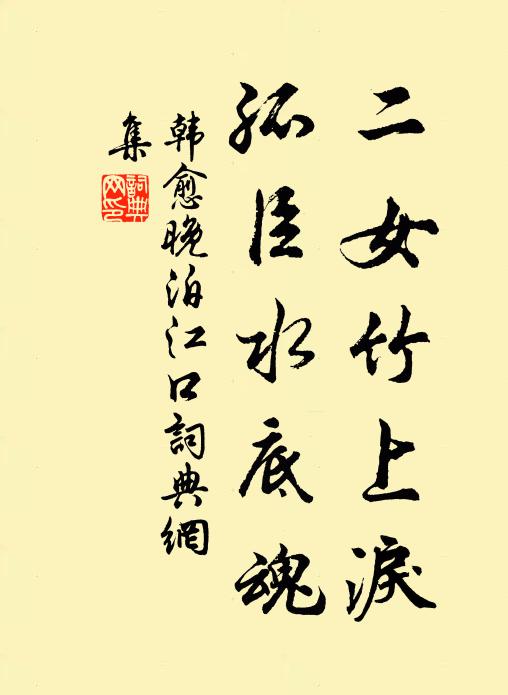 二女竹上淚
孤臣水底魂
韩愈晚泊江口詞典網
集
詞典
网印